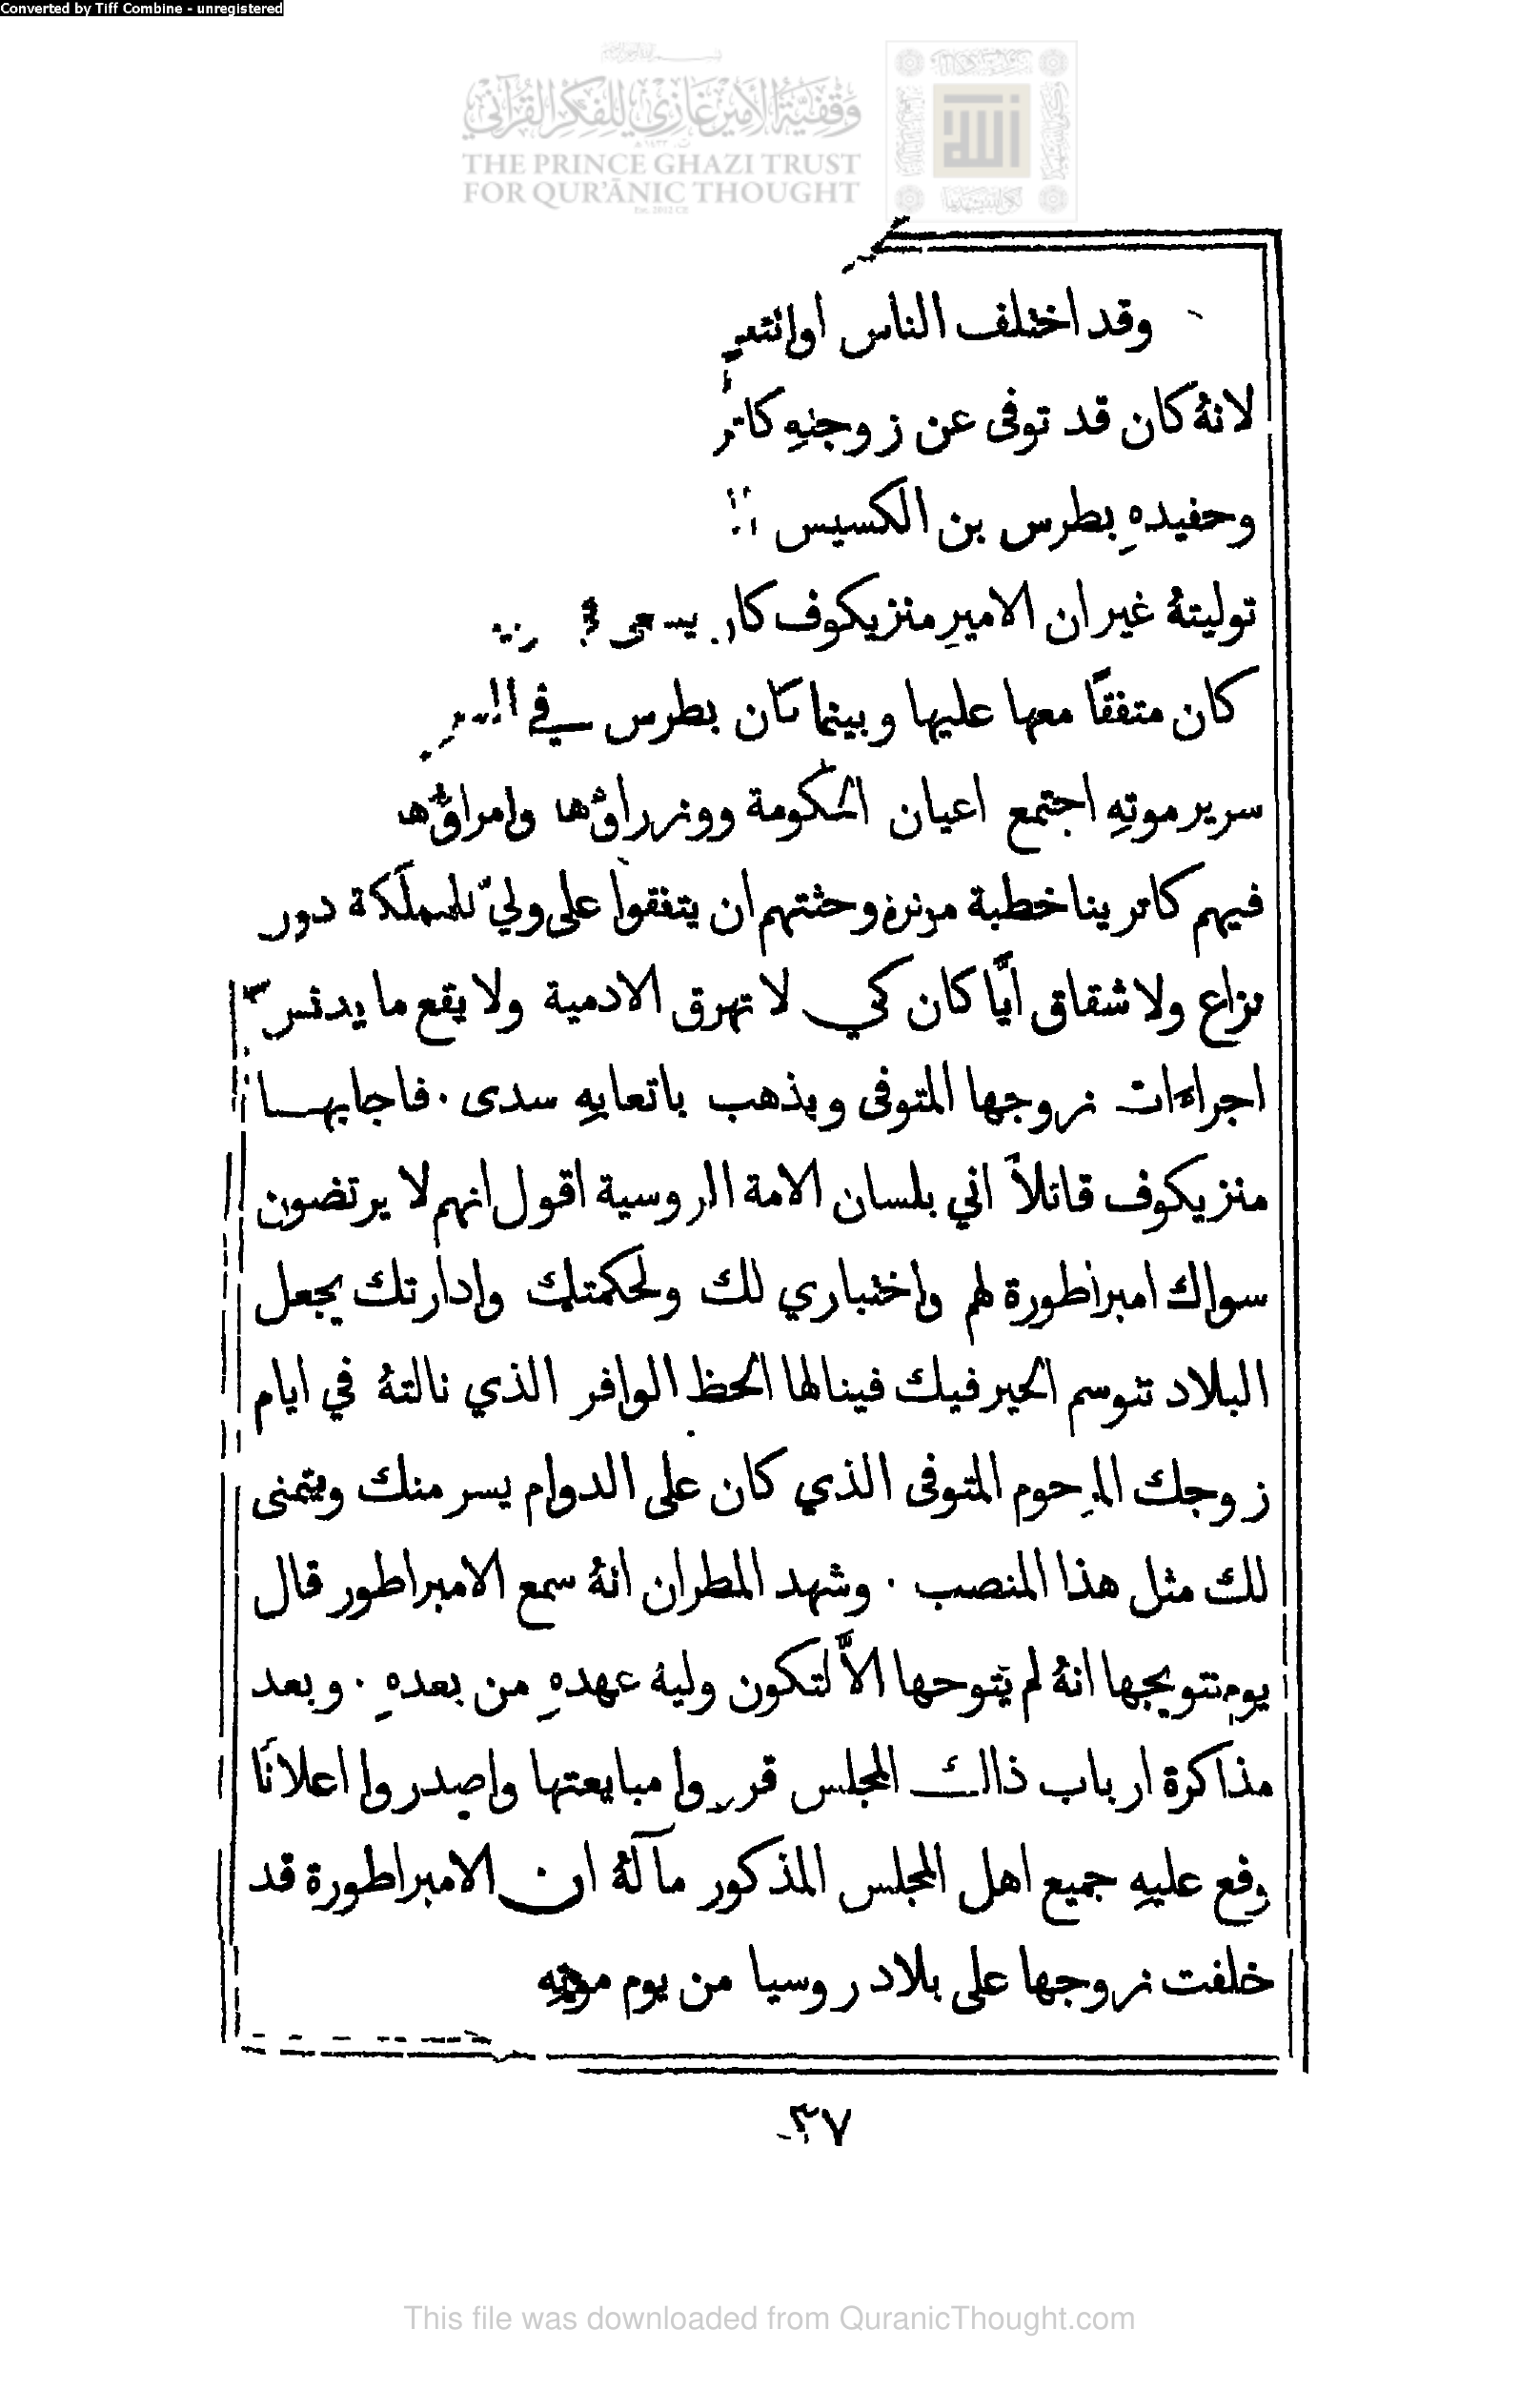 Converted by Tiff Combine - unregistered
وقفية الأمير غازي للفكر القرآني
THE PRINCE GHAZI TRUST
FOR QUR'ĀNIC THOUGHT
وقد اختلف الناس اولا
لانهُ كان قد توفى عن زوجتهِ
وحفيدهِ بطرس بن الكسيس
توليتهُ غير ان الامير منزيكوف كان يسعى
كان متفقًا معها عليها وبينما كان بطرس في
سرير موتهِ اجتمع اعيان الحكومة ووزراؤها وامراؤها
فيهم كاترينا خطبة مؤثرة وحثتهم ان يتفقوا على وليّ للمملكة دون
نزاع ولا شقاق ايًّا كان كي لا تهرق الادمية ولا يقع ما يدنس
اجراءات زوجها المتوفى ويذهب باتعابهِ سدى . فاجابها
منزيكوف قائلاً اني بلسان الامة الروسية اقول انهم لا يرتضون
سواك امبراطورة لهم واختباري لك ولحكمتك وادارتك يجعل
البلاد تتوسم الخير فيك فينالها الحظ الوافر الذي نالتهُ في ايام
زوجك المرحوم المتوفى الذي كان على الدوام يسر منك ويتمنى
لك مثل هذا المنصب . وشهد المطران انهُ سمع الامبراطور قال
يوم تتويجها انهُ لم يتوجها الاَّ لتكون ولية عهدهِ من بعدهِ . وبعد
مذاكرة ارباب ذالك المجلس قرروا مبايعتها واصدروا اعلانًا
وقع عليهِ جميع اهل المجلس المذكور مآلهُ ان الامبراطورة قد
خلفت زوجها على بلاد روسيا من يوم موتهِ
٣٧
This file was downloaded from QuranicThought.com